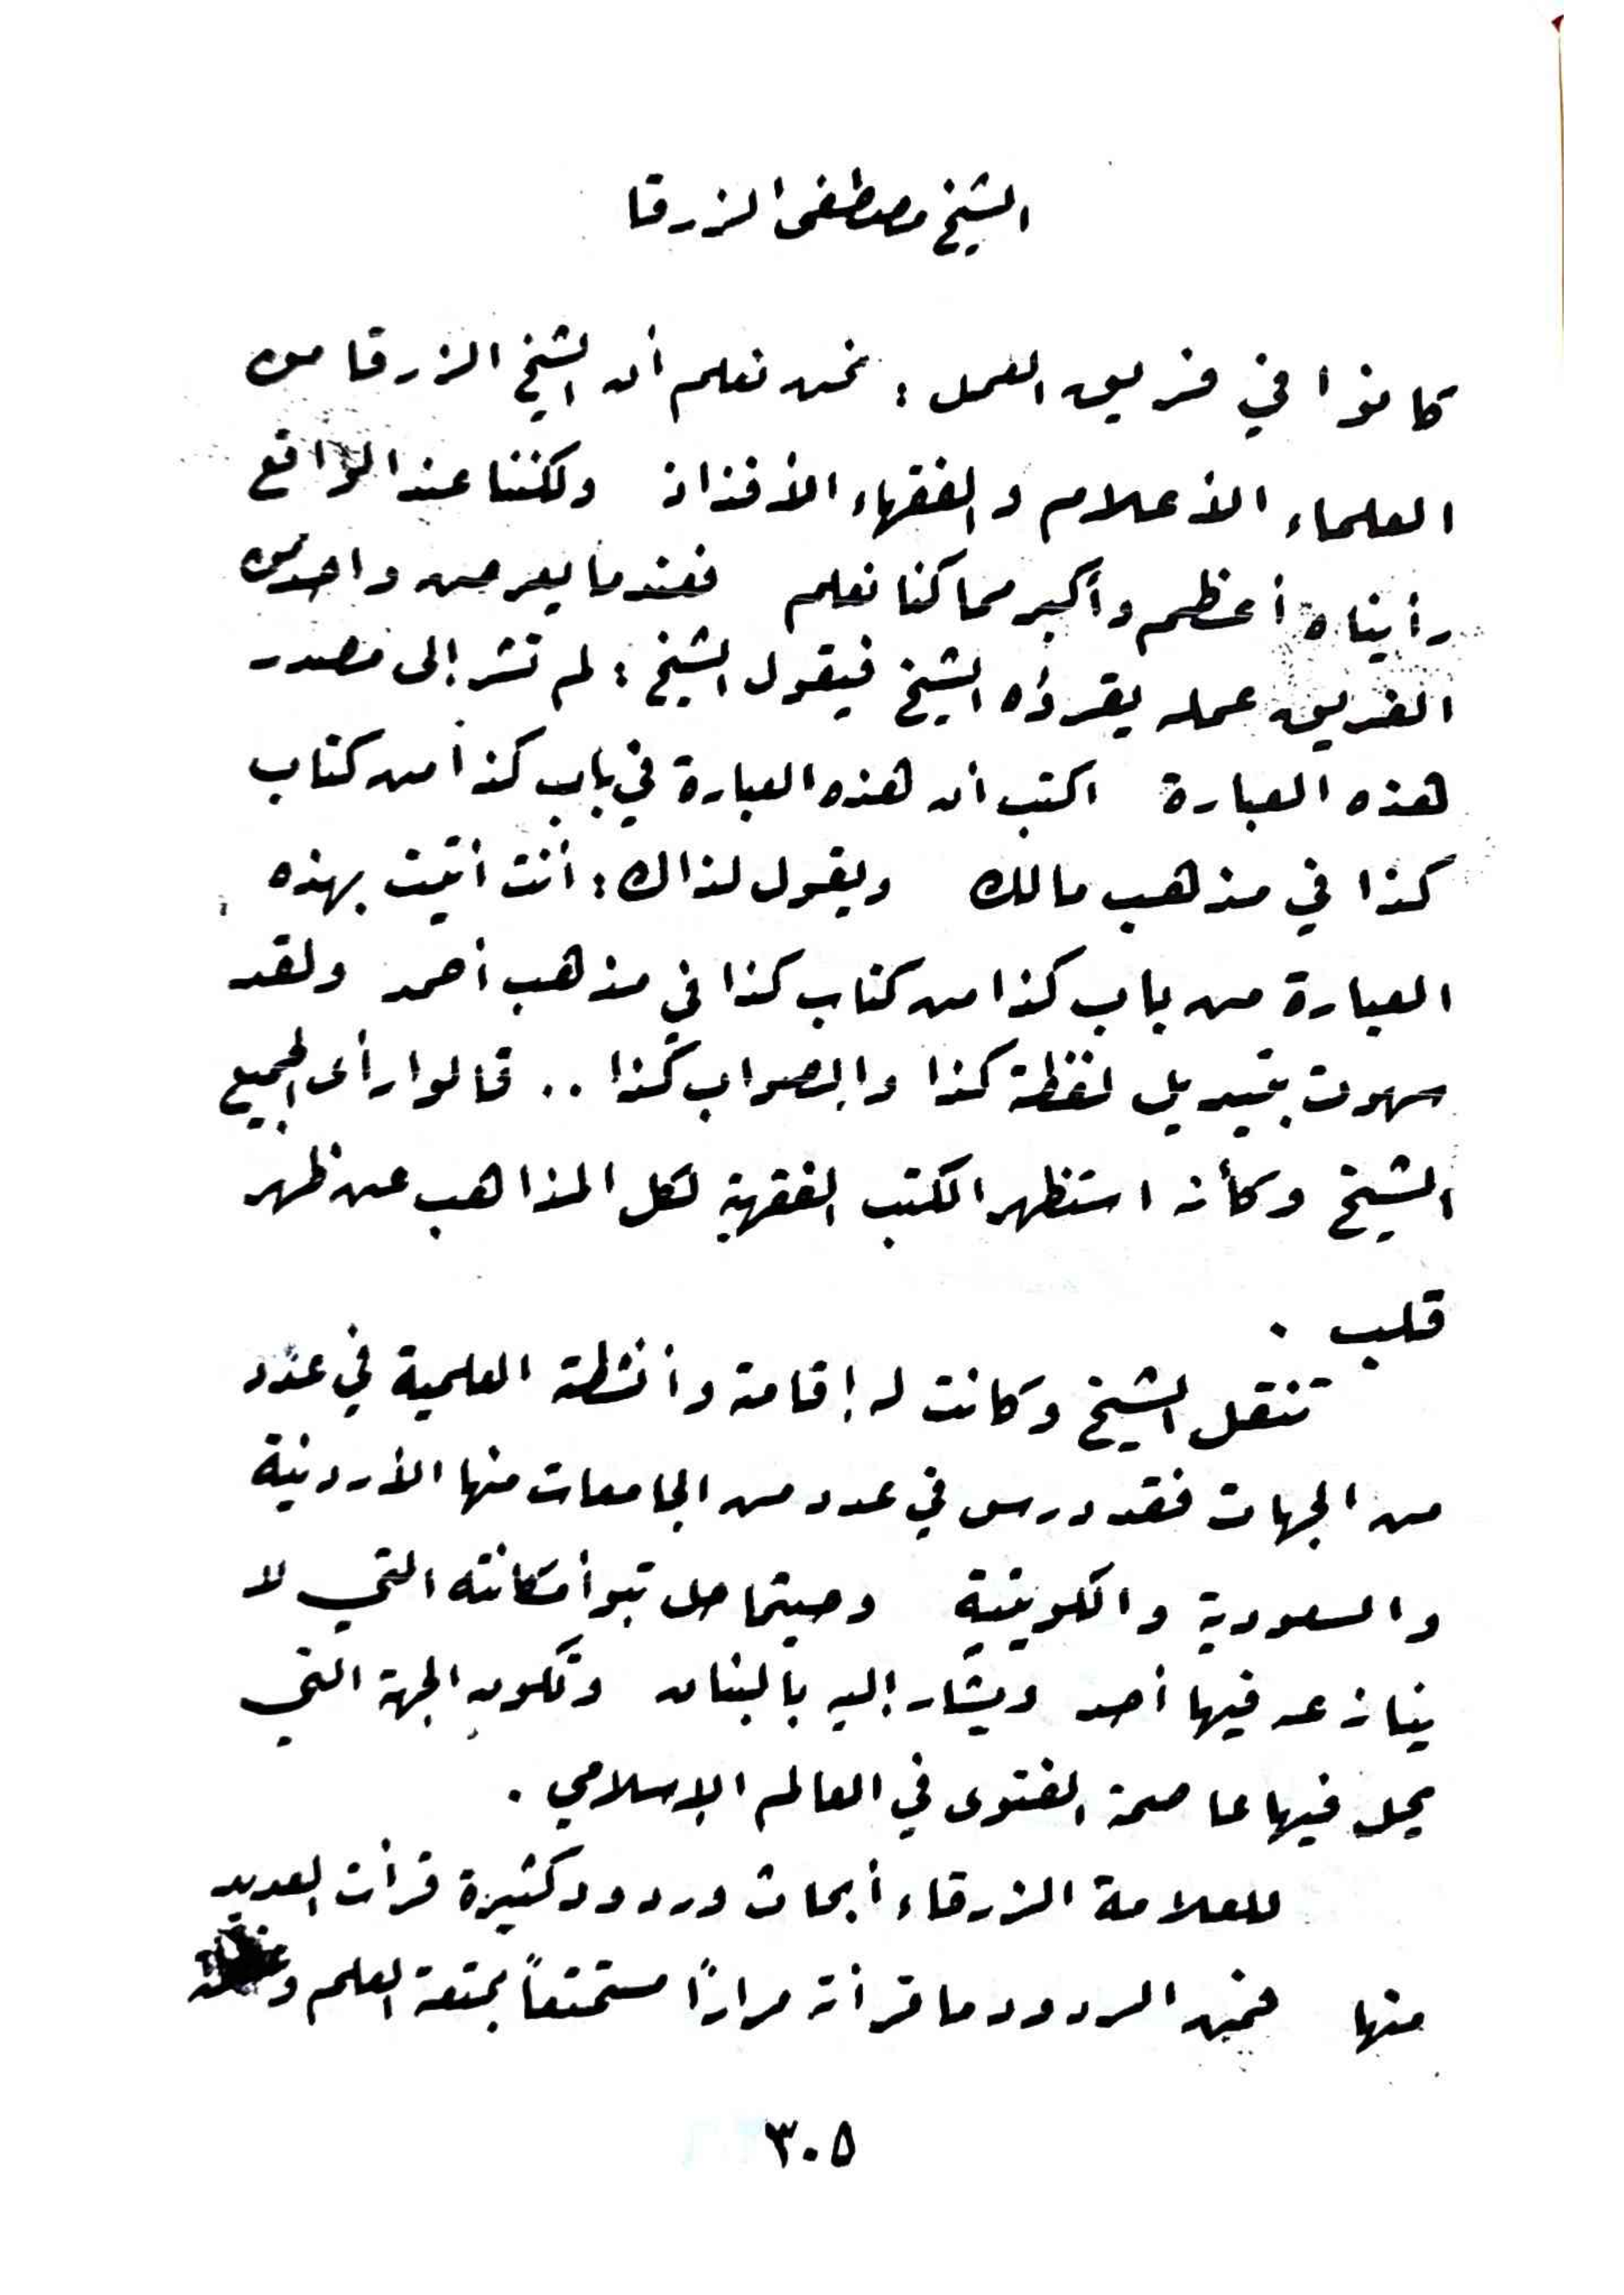 الشيخ مصطفى الزرقا
كانوا في فريق العمل : نحن نعلم أن الشيخ الزرقا من
العلماء الأعلام والفقهاء الأفذاذ ولكننا عند الواقع
رأيناه أعظم وأكبر مما كنا نعلم فعندما يعرض واحد من
الفريق عمله يقرؤه الشيخ فيقول الشيخ : لم تشر إلى مصدر
هذه العبارة اكتب أن هذه العبارة في باب كذا من كتاب
كذا في مذهب مالك ويقول لذاك : أنت أتيت بهذه
العبارة من باب كذا من كتاب كذا في مذهب أحمد ولقد
سهوت بتبديل لفظة كذا والصواب كذا .. قالوا رأى الجميع
الشيخ وكأنه استظهر الكتب الفقهية لكل المذاهب عن ظهر
قلب .
تنقل الشيخ وكانت له إقامة وأنشطة العلمية في عدد
من الجهات فقد درس في عدد من الجامعات منها الأردنية
والسعودية والكويتية وحيثما حل تبوأ مكانته التي لا
ينازعه فيها أحد ويشار إليه بالبنان وتكون الجهة التي
يحل فيها عاصمة الفتوى في العالم الإسلامي .
للعلامة الزرقاء أبحاث وردود كثيرة قرأت العديد
منها فمن الردود ما قرأته مرارًا مستمتعاً بمتعة العلم و
٣٠٥